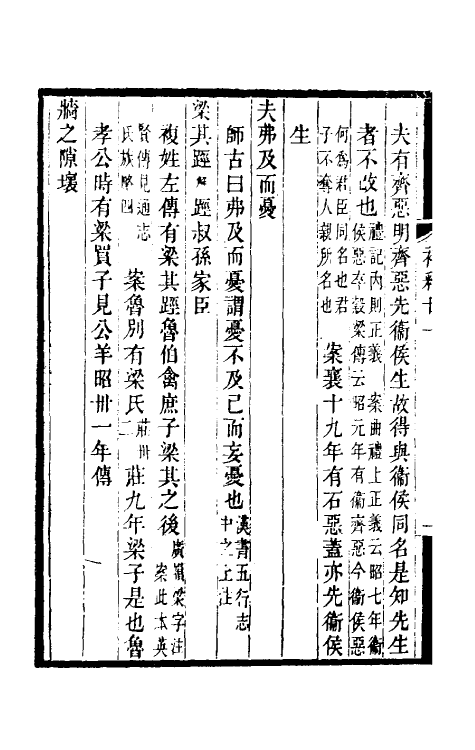 夫有齊惡明齊惡先衞侯生故得與衞侯同名是知先生
者不改也禮記內則正義 案曲禮上正義云昭七年衞侯惡卒穀梁傳云昭元年有衞齊惡今衞侯惡
何爲君臣同名也君子不奪人親所名也 案襄十九年有石惡蓋亦先衞侯
生
夫弗及而憂
師古曰弗及而憂謂憂不及己而妄憂也漢書五行志中之上注
梁其踁解 踁叔孫家臣
複姓左傳有梁其踁魯伯禽庶子梁其之後廣韻梁字注案此本英
賢傳見通志氏族略四 案魯別有梁氏莊卅二莊九年梁子是也魯
孝公時有梁買子見公羊昭卅一年傳
牆之隙壞